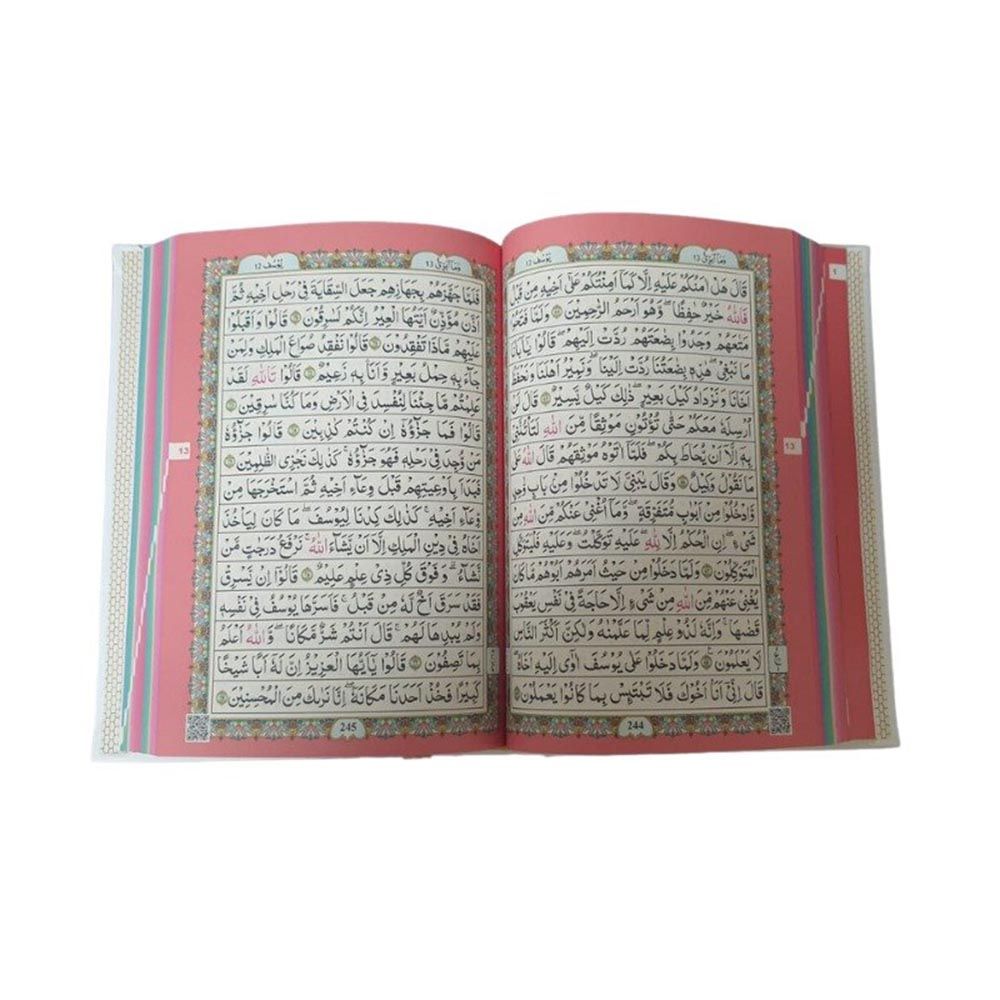 وَمَآ اُبَرِّئُ 13
یُوْسُف 12
قَالَ هَلْ اٰمَنُكُمْ عَلَیْهِ اِلَّا كَمَاۤ اَمِنْتُكُمْ عَلٰۤى اَخِیْهِ مِنْ قَبْلُ
فَاللّٰهُ خَیْرٌ حٰفِظًا وَّهُوَ اَرْحَمُ الرّٰحِمِیْنَ وَلَمَّا فَتَحُوْا
مَتَاعَهُمْ وَجَدُوْا بِضَاعَتَهُمْ رُدَّتْ اِلَیْهِمْ قَالُوْا یٰۤاَبَانَا
مَا نَبْغِیْ هٰذِهٖ بِضَاعَتُنَا رُدَّتْ اِلَیْنَا وَنَمِیْرُ اَهْلَنَا وَنَحْفَظُ
اَخَانَا وَنَزْدَادُ كَیْلَ بَعِیْرٍ ذٰلِكَ كَیْلٌ یَّسِیْرٌ قَالَ لَنْ
اُرْسِلَهٗ مَعَكُمْ حَتّٰى تُؤْتُوْنِ مَوْثِقًا مِّنَ اللّٰهِ لَتَاْتُنَّنِیْ
بِهٖۤ اِلَّاۤ اَنْ یُّحَاطَ بِكُمْ فَلَمَّاۤ اٰتَوْهُ مَوْثِقَهُمْ قَالَ اللّٰهُ عَلٰى
مَا نَقُوْلُ وَكِیْلٌ وَقَالَ یٰبَنِیَّ لَا تَدْخُلُوْا مِنْۢ بَابٍ وَّاحِدٍ
وَّادْخُلُوْا مِنْ اَبْوَابٍ مُّتَفَرِّقَةٍ وَمَاۤ اُغْنِیْ عَنْكُمْ مِّنَ اللّٰهِ مِنْ
شَیْءٍ اِنِ الْحُكْمُ اِلَّا لِلّٰهِ عَلَیْهِ تَوَكَّلْتُ وَعَلَیْهِ فَلْیَتَوَكَّلِ
الْمُتَوَكِّلُوْنَ وَلَمَّا دَخَلُوْا مِنْ حَیْثُ اَمَرَهُمْ اَبُوْهُمْ مَّا كَانَ
یُغْنِیْ عَنْهُمْ مِّنَ اللّٰهِ مِنْ شَیْءٍ اِلَّا حَاجَةً فِیْ نَفْسِ یَعْقُوْبَ
قَضٰىهَا وَاِنَّهٗ لَذُوْ عِلْمٍ لِّمَا عَلَّمْنٰهُ وَلٰكِنَّ اَكْثَرَ النَّاسِ
لَا یَعْلَمُوْنَ وَلَمَّا دَخَلُوْا عَلٰى یُوْسُفَ اٰوٰۤى اِلَیْهِ اَخَاهُ
قَالَ اِنِّیْۤ اَنَا اَخُوْكَ فَلَا تَبْتَىِٕسْ بِمَا كَانُوْا یَعْمَلُوْنَ
244
13
1
وَمَآ اُبَرِّئُ 13
یُوْسُف 12
فَلَمَّا جَهَّزَهُمْ بِجَهَازِهِمْ جَعَلَ السِّقَایَةَ فِیْ رَحْلِ اَخِیْهِ ثُمَّ
اَذَّنَ مُؤَذِّنٌ اَیَّتُهَا الْعِیْرُ اِنَّكُمْ لَسٰرِقُوْنَ قَالُوْا وَاَقْبَلُوْا
عَلَیْهِمْ مَّاذَا تَفْقِدُوْنَ قَالُوْا نَفْقِدُ صُوَاعَ الْمَلِكِ وَلِمَنْ
جَآءَ بِهٖ حِمْلُ بَعِیْرٍ وَّاَنَا بِهٖ زَعِیْمٌ قَالُوْا تَاللّٰهِ لَقَدْ
عَلِمْتُمْ مَّا جِئْنَا لِنُفْسِدَ فِی الْاَرْضِ وَمَا كُنَّا سٰرِقِیْنَ
قَالُوْا فَمَا جَزَآؤُهٗۤ اِنْ كُنْتُمْ كٰذِبِیْنَ قَالُوْا جَزَآؤُهٗ
مَنْ وُّجِدَ فِیْ رَحْلِهٖ فَهُوَ جَزَآؤُهٗ كَذٰلِكَ نَجْزِی الظّٰلِمِیْنَ
فَبَدَاَ بِاَوْعِیَتِهِمْ قَبْلَ وِعَآءِ اَخِیْهِ ثُمَّ اسْتَخْرَجَهَا مِنْ
وِّعَآءِ اَخِیْهِ كَذٰلِكَ كِدْنَا لِیُوْسُفَ مَا كَانَ لِیَاْخُذَ
اَخَاهُ فِیْ دِیْنِ الْمَلِكِ اِلَّاۤ اَنْ یَّشَآءَ اللّٰهُ نَرْفَعُ دَرَجٰتٍ مَّنْ
نَّشَآءُ وَفَوْقَ كُلِّ ذِیْ عِلْمٍ عَلِیْمٌ قَالُوْۤا اِنْ یَّسْرِقْ
فَقَدْ سَرَقَ اَخٌ لَّهٗ مِنْ قَبْلُ فَاَسَرَّهَا یُوْسُفُ فِیْ نَفْسِهٖ
وَلَمْ یُبْدِهَا لَهُمْ قَالَ اَنْتُمْ شَرٌّ مَّكَانًا وَاللّٰهُ اَعْلَمُ
بِمَا تَصِفُوْنَ قَالُوْا یٰۤاَیُّهَا الْعَزِیْزُ اِنَّ لَهٗۤ اَبًا شَیْخًا
كَبِیْرًا فَخُذْ اَحَدَنَا مَكَانَهٗ اِنَّا نَرٰىكَ مِنَ الْمُحْسِنِیْنَ
245
13